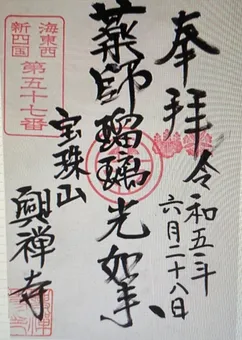 奉拝
令和五年
六月二十八日
薬師瑠璃光如来
海東西
新四国
第五十七番
宝珠山
興禅寺